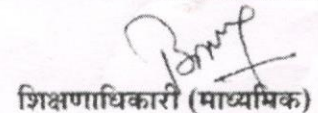 शिक्षणाधिकारी (माध्यमिक)